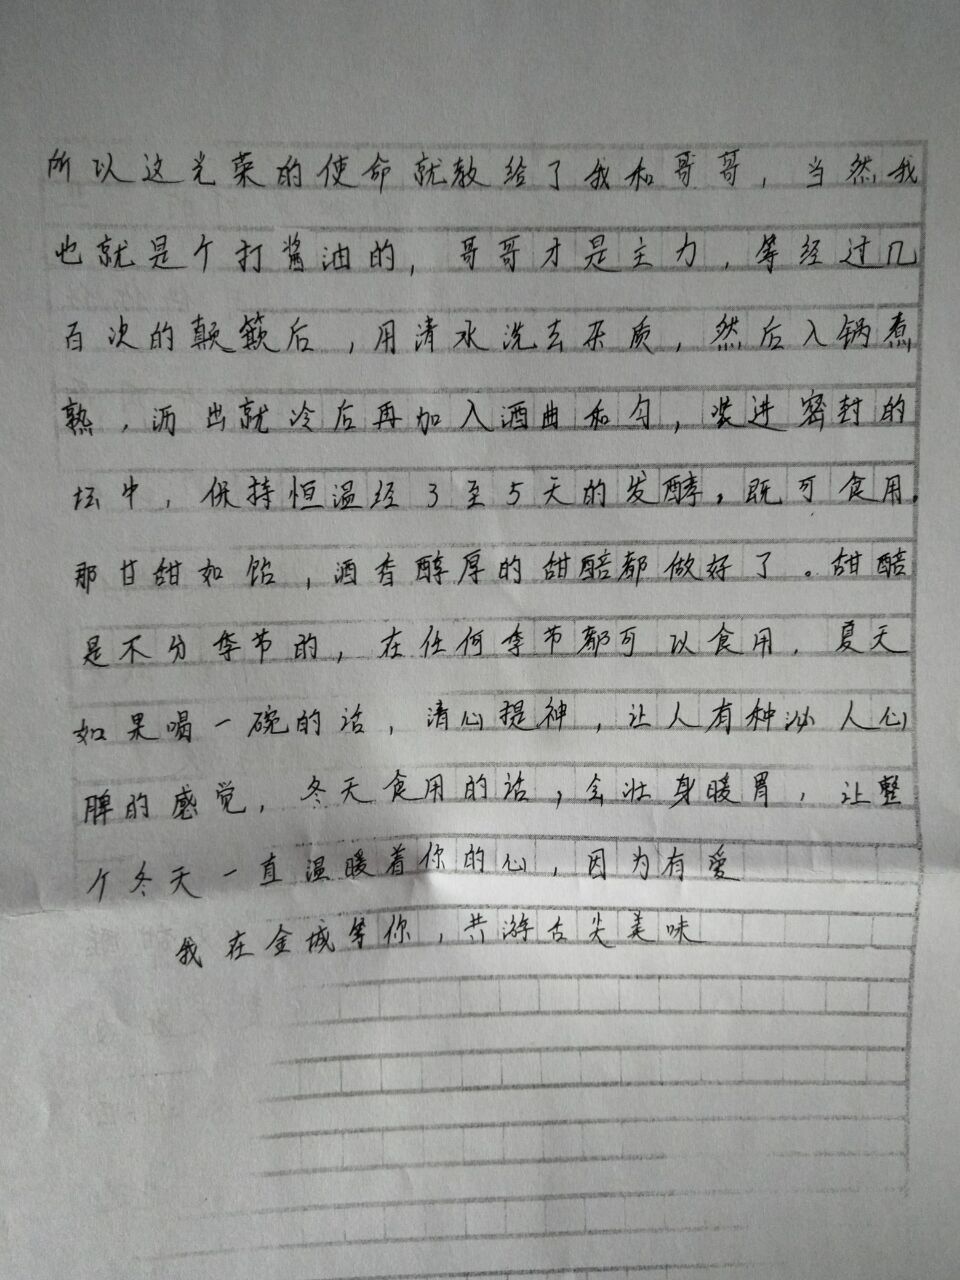 所以这光荣的使命就教给了我和哥哥，当然我
也就是个打酱油的，哥哥才是主力，等经过几
百次的颠簸后，用清水洗去杂质，然后入锅煮
熟，沥出就冷后再加入酒曲和匀，装进密封的
坛中，保持恒温经3至5天的发酵，既可食用。
那甘甜如饴，酒香醇厚的甜醅都做好了。甜醅
是不分季节的，在任何季节都可以食用，夏天
如果喝一碗的话，清心提神，让人有种沁人心
脾的感觉，冬天食用的话，会壮身暖胃，让整
个冬天一直温暖着你的心，因为有爱
我在金城等你，共游舌尖美味